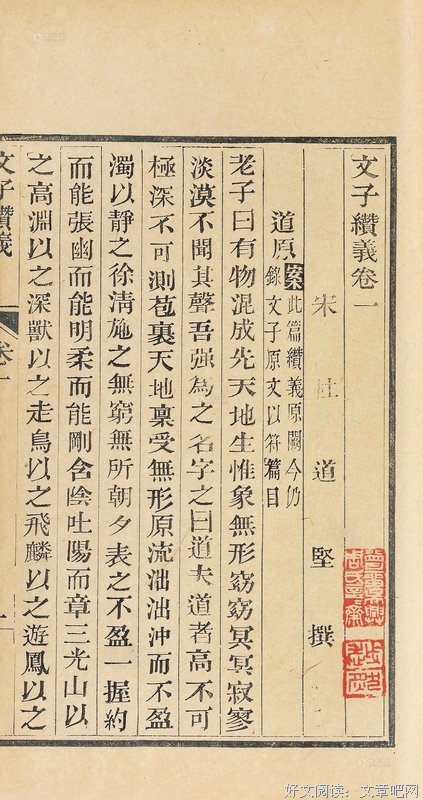 文子纘義卷一
宋 杜 道 堅 撰
道原 案 此篇纘義原闕今仍
錄文子原文以符篇目
老子曰有物混成先天地生惟象無形窈窈冥冥寂寥
淡漠不聞其聲吾强為之名字之曰道夫道者高不可
極深不可測苞裹天地稟受無形原流泏泏沖而不盈
濁以靜之徐清施之無窮無所朝夕表之不盈一握約
而能張幽而能明柔而能剛含陰吐陽而章三光山以
之高淵以之深獸以之走鳥以之飛麟以之遊鳳以之
文子纘義 卷一 一
好文阅读：文章吧网